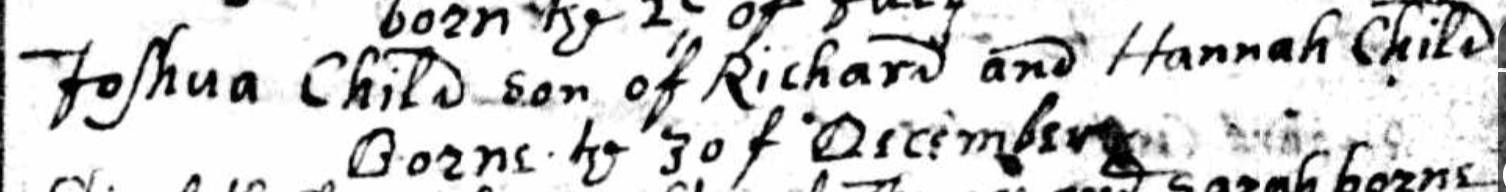 born the 2 of July
Joshua Child son of Richard and Hannah Child
Borne the 30 of December
Sarah borne